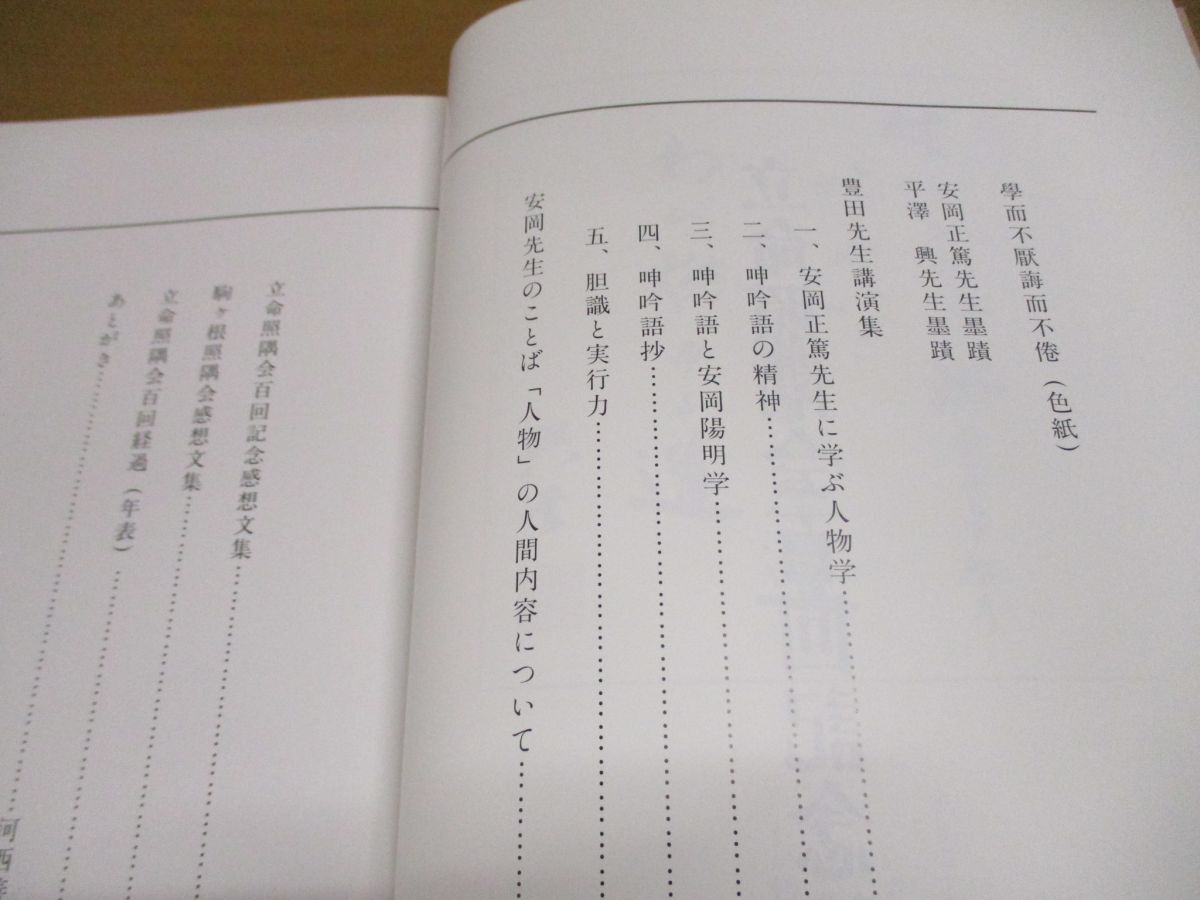 學而不厭誨而不倦（色紙）
安岡正篤先生墨蹟
平澤　興先生墨蹟
豊田先生講演集
一、安岡正篤先生に学ぶ人物学……………
二、呻吟語の精神……………
三、呻吟語と安岡陽明学……………
四、呻吟語抄……………
五、胆識と実行力……………
安岡先生のことば「人物」の人間内容について……………
立命照隅会百回記念感想文集……………
駒ヶ根照隅会感想文集……………
立命照隅会百回経過（年表）……………
あとがき……………
河西